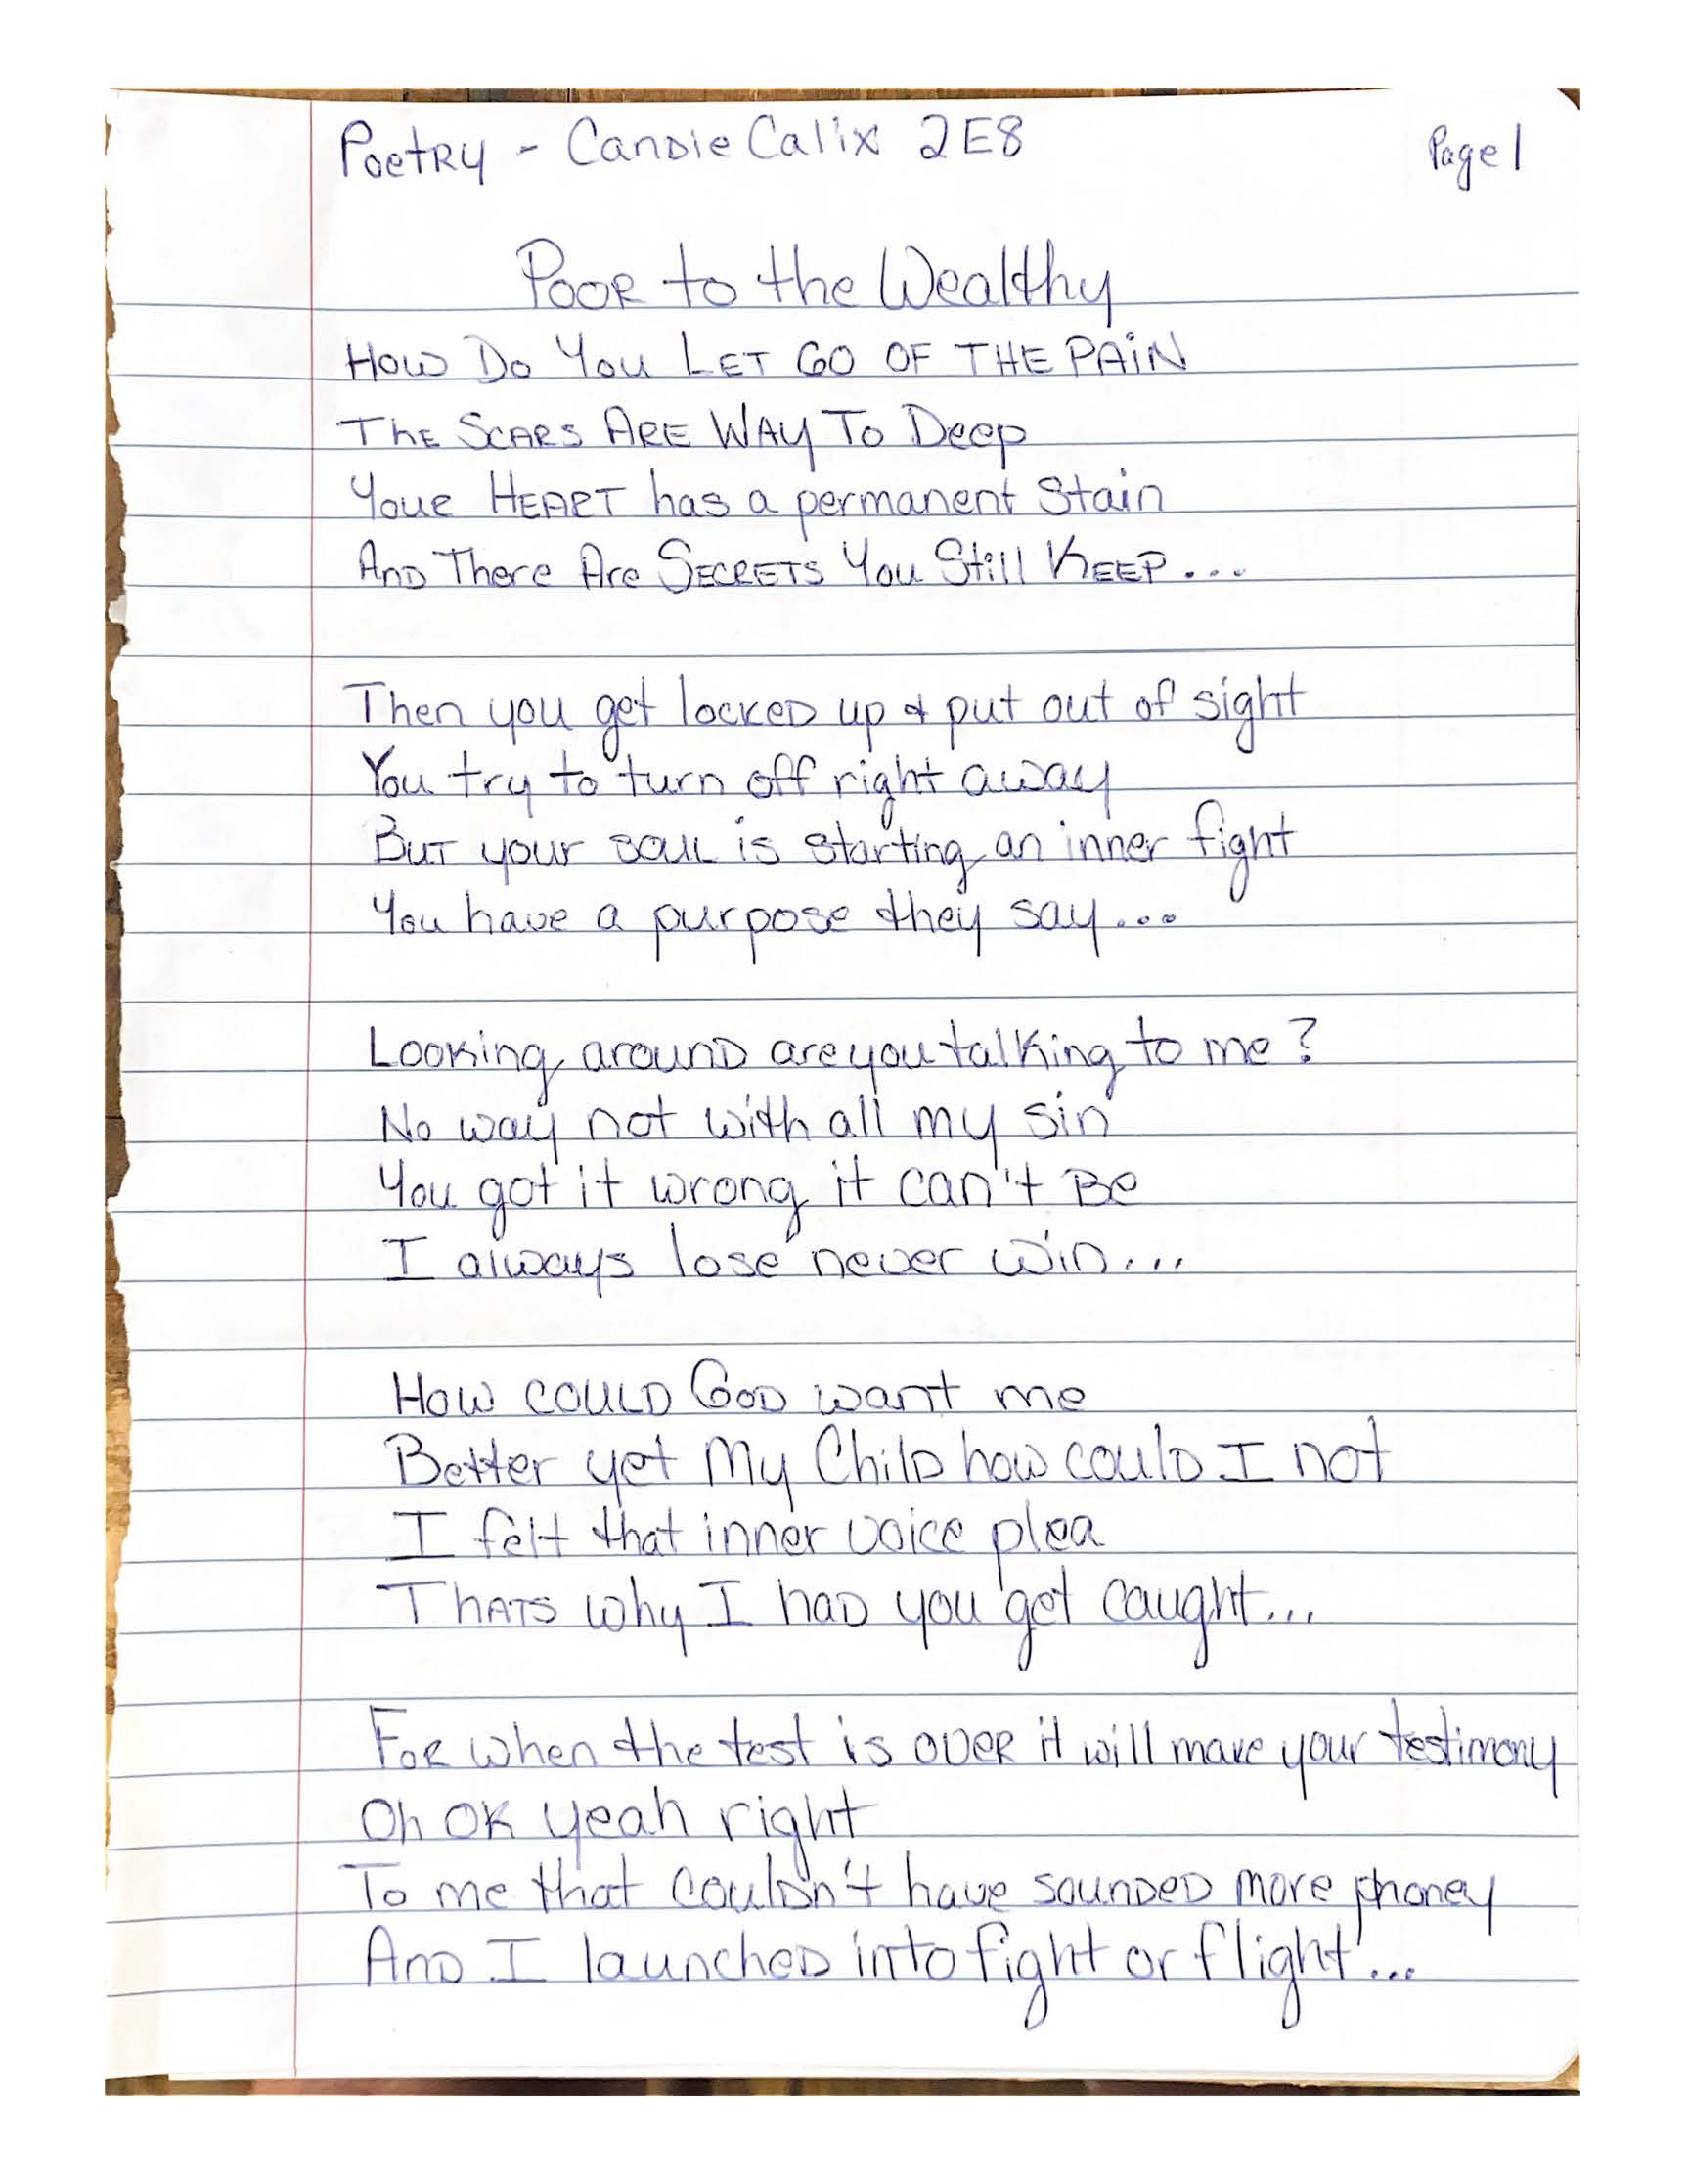 Poetry - Candie Calix 2E8
Page 1
Poor to the Wealthy
How Do You LET GO OF THE PAiN
The Scars Are Way To Deep
Your HEART has a permanent Stain
And There Are Secrets You Still Keep...
Then you get locked up & put out of sight
You try to turn off right away
But your soul is starting an inner fight
You have a purpose they say...
Looking around are you talking to me?
No way not with all my sin
You got it wrong it can't Be
I always lose never win...
How could God want me
Better yet My Child how could I not
I felt that inner voice plea
Thats why I had you get caught...
For when the test is over it will make your testimony
Oh OK yeah right
To me that couldn't have sounded more phoney
And I launched into fight or flight...